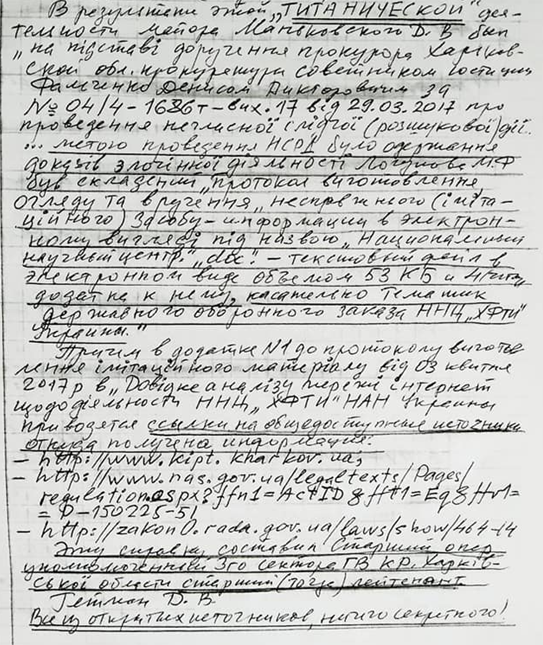 В результате этой „ТИТАНИЧЕСКОЙ" дея-
тельности майора Маньковского Д. В. был
„на підставі доручення прокурора Харков-
ской обл. прокуратура советником юстиции
Фальченко Денисом Викторовичем за
№ 04/4-1636т-вих.17 від 29.03.2017 про
проведення негласної слідчої (розшукової) дії..
... метою проведення НСРД було одержання
доказів злочинної діяльності Логунова М.Ф
був складений „протокол виготовлення
огляду та вручення „несправжнього (іміта-
ційного) засобу - информации в электрон-
ному вигляді під назвою „Национальный
научный центр" „doc" - текстовый файл в
электронном виде объемом 53 КБ и
додатка к нему, касательно тематик
державного оборонного заказа ННЦ „ХФТИ"
Украины."
Причем в додатке N1 до протоколу вигото-
влення імітаційного матеріалу від 03 квітня
2017 р в „Довідке аналізу мережі інтернет
щодо діяльності ННЦ „ХФТИ" НАН Украины
приводятся ссылки на общедоступные источники
откуда получена информация:
- http://www.kipt.kharkov.ua;
- http://www.nas.gov.ua/legaltexts/Pages/
regulation.aspx?ffn1=ActID&fft1=Eq&ffv1=
= P-150225-51
- http://zakon0.rada.gov.ua/laws/show/464-14
Эту справку, составил Старший опер
уполномоченный 3го сектора ГВ КР. Харків-
ської области старший (тогда) лейтенант
Гетман Д. В
Все из открытых источников, ничего секретного!